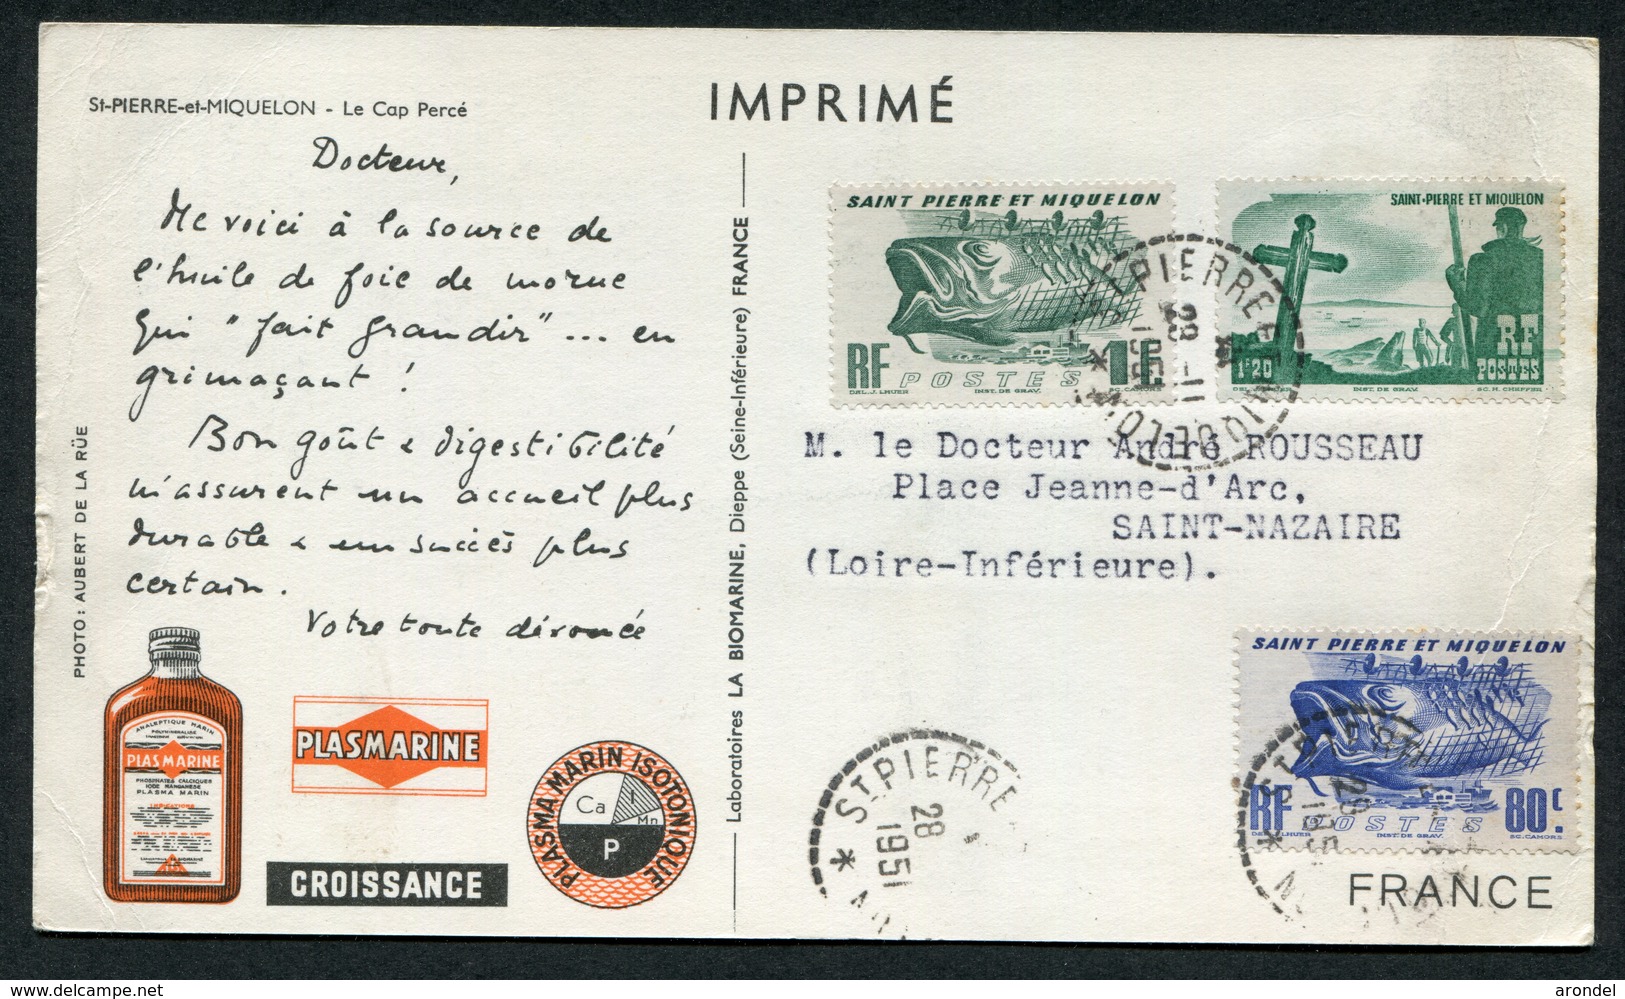 St-PIERRE-et-MIQUELON - Le Cap Percé
IMPRIMÉ
Docteur,
Me voici à la source de
l'huile de foie de morue
qui "fait grandir"... en
grimaçant !
Bon goût & digestibilité
m'assurent un accueil plus
durable & un succès plus
certain.
Votre toute dévouée
PHOTO: AUBERT DE LA RÜE
ANALEPTIQUE MARIN
PLASMARINE
PHOSPHATES CALCIQUES
IODE MANGANESE
PLASMA MARIN
INDICATIONS
PLASMARINE
CROISSANCE
PLASMA MARIN ISOTONIQUE
Ca
I
Mn
P
Laboratoires LA BIOMARINE, Dieppe (Seine-Inférieure) FRANCE
SAINT PIERRE ET MIQUELON
RF POSTES 1F.
DEL. J. LHUER INST. DE GRAV. SC. CAMORS
SAINT-PIERRE ET MIQUELON
1F20
RF
POSTES
INST. DE GRAV. SC. H. CHEFFER
ST PIERRE
28-11
1951
MIQUELON
M. le Docteur André ROUSSEAU
Place Jeanne-d'Arc,
SAINT-NAZAIRE
(Loire-Inférieure).
SAINT PIERRE ET MIQUELON
RF POSTES 80c.
DEL. J. LHUER INST. DE GRAV. SC. CAMORS
ST PIERRE
28
1951
ST PIERRE
28
195
FRANCE
delcampe.net
arondel